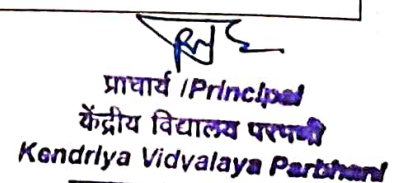 प्राचार्य /Principal
केंद्रीय विद्यालय परभणी
Kendriya Vidyalaya Parbhani